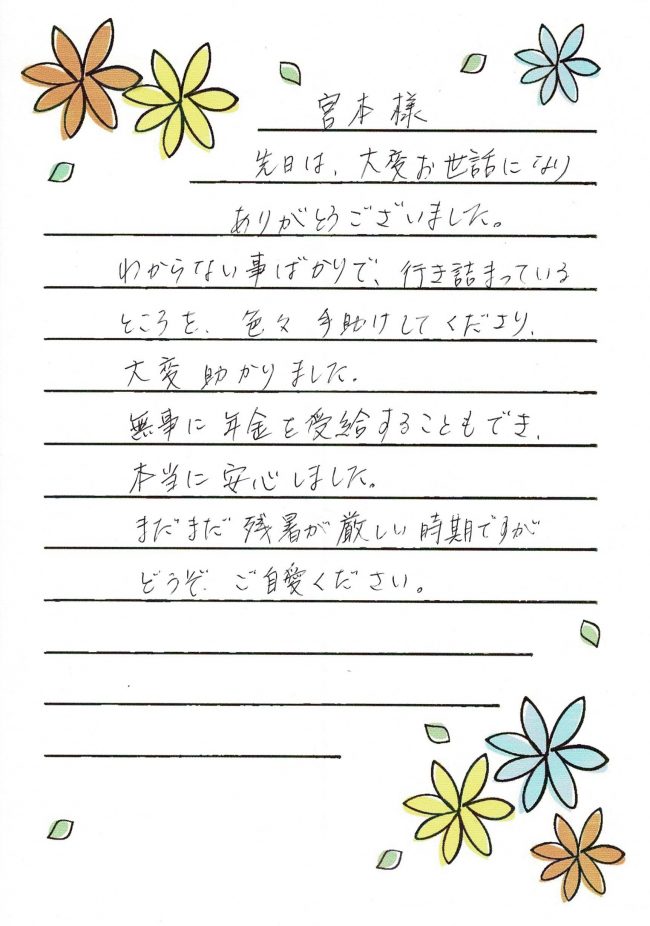 宮本様
先日は、大変お世話になり
ありがとうございました。
わからない事ばかりで、行き詰まっている
ところを、色々手助けしてくださり、
大変助かりました。
無事に年金を受給することもでき、
本当に安心しました。
まだまだ残暑が厳しい時期ですが
どうぞ、ご自愛ください。